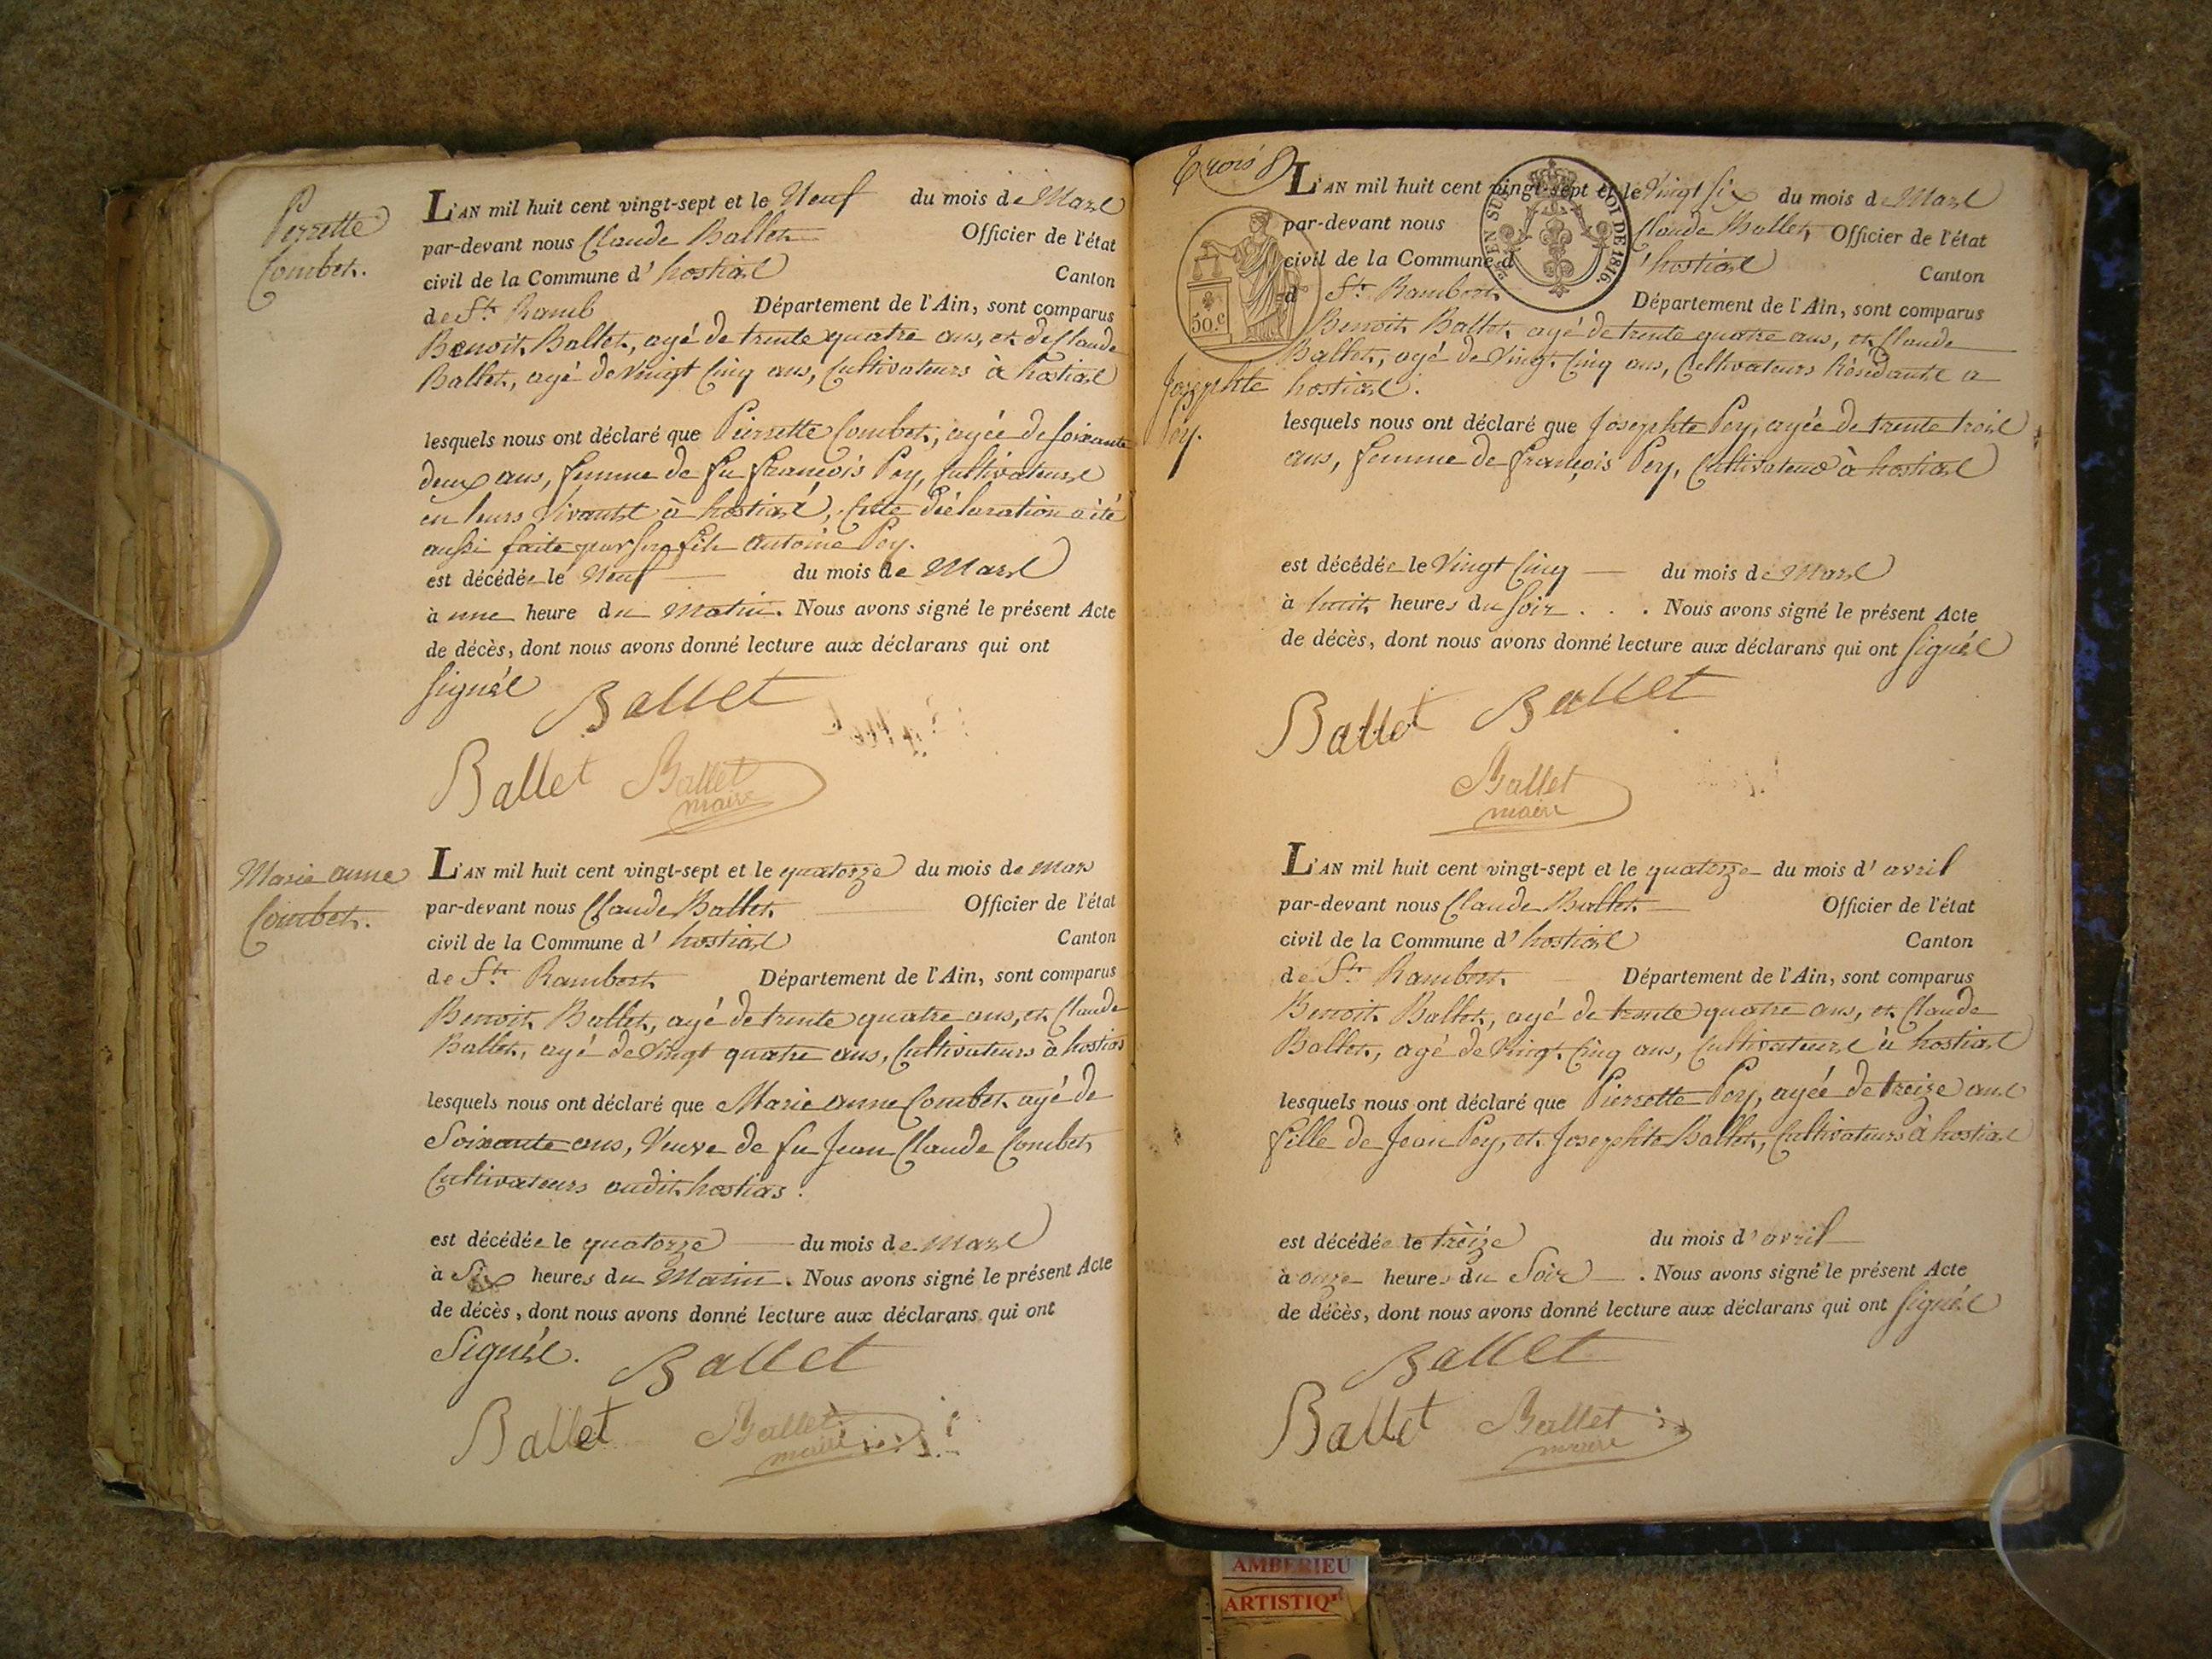 Pierrette
Combet.
L'AN mil huit cent vingt-sept et le Neuf du mois de Mars
par-devant nous Claude Ballet Officier de l'état
civil de la Commune d' hostias Canton
de St. Ramb Département de l'Ain, sont comparus
Benoit Ballet, agé de trente quatre ans, et de Claude
Ballet, agé de Vingt Cinq ans, Cultivateurs à hostias
lesquels nous ont déclaré que Pierrette Combet, agée de soixante
deux ans, femme de fu françois Pey, Cultivateurs
en leurs Vivants à hostias, Cette déclaration a été
aussi faite par son fils antoine Pey.
est décédée le Neuf du mois de Mars
à une heure du Matin. Nous avons signé le présent Acte
de décès, dont nous avons donné lecture aux déclarans qui ont
signés
Ballet
Ballet Ballet
maire
Marie anne
Combet.
L'AN mil huit cent vingt-sept et le quatorze du mois de Mars
par-devant nous Claude Ballet Officier de l'état
civil de la Commune d' hostias Canton
de St. Rambert Département de l'Ain, sont comparus
Benoit Ballet, agé de trente quatre ans, et Claude
Ballet, agé de Vingt quatre ans, Cultivateurs à hostias
lesquels nous ont déclaré que Marie anne Combet agé de
Soixante ans, Veuve de fu Jean Claude Combet
Cultivateurs audit hostias.
est décédée le quatorze du mois de Mars
à Six heures du Matin. Nous avons signé le présent Acte
de décès, dont nous avons donné lecture aux déclarans qui ont
Signés.
Ballet
Ballet Ballet
maire
Trois
L'AN mil huit cent vingt-sept et le Vingt Six du mois de Mars
par-devant nous Claude Ballet, Officier de l'état
civil de la Commune d'hostias Canton
d St. Rambert Département de l'Ain, sont comparus
LOI DE 1816
50.c
Benoit Ballet agé de trente quatre ans, et Claude
Ballet, agé de Vingt Cinq ans, Cultivateurs Résidants a
hostias.
Josephte
Pey.
lesquels nous ont déclaré que Josephte Pey, agée de trente trois
ans, femme de françois Pey, Cultivateur à hostias
est décédée le Vingt Cinq du mois de Mars
à huit heures du Soir . . . Nous avons signé le présent Acte
de décès, dont nous avons donné lecture aux déclarans qui ont signés
Ballet Ballet
Ballet
maire
L'AN mil huit cent vingt-sept et le quatorze du mois d' avril
par-devant nous Claude Ballet Officier de l'état
civil de la Commune d' hostias Canton
de St. Rambert Département de l'Ain, sont comparus
Benoit Ballet, agé de trente quatre ans, et Claude
Ballet, agé de Vingt Cinq ans, Cultivateurs à hostias
lesquels nous ont déclaré que Pierrette Pey, agée de treize ans
fille de Jean Pey, et Josephte Ballet, Cultivateurs à hostias
est décédée le treize du mois d' avril
à onze heures du Soir . Nous avons signé le présent Acte
de décès, dont nous avons donné lecture aux déclarans qui ont signés
Ballet
Ballet Ballet
maire
AMBERIEU
ARTISTIQ